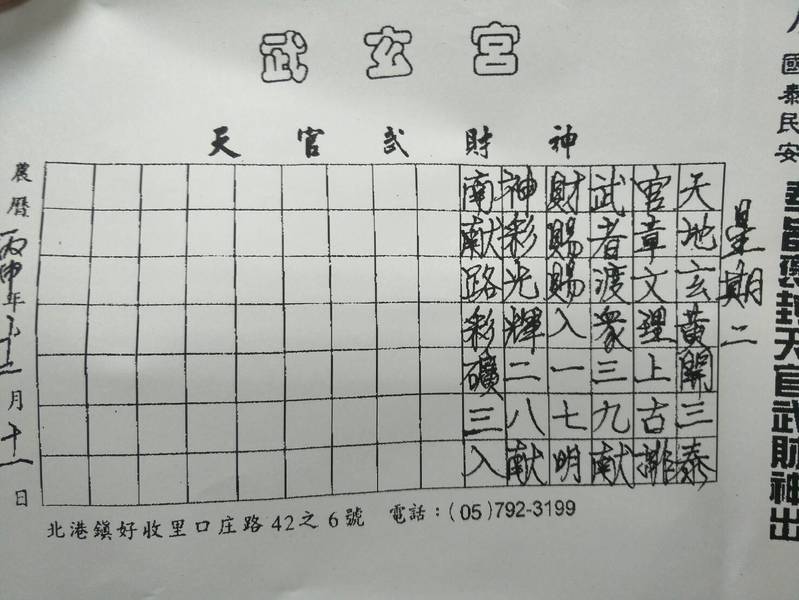 武玄宮
天官武財神
國泰民安
天官武財神出
星期二
天地玄黃開三泰
官章文理上古排
武者渡眾三九献
財賜賜入一七明
神彩光輝二八献
南献路彩礦三入
農曆丙申年十二月十一日
北港鎮好收里口庄路42之6號 電話：(05)792-3199